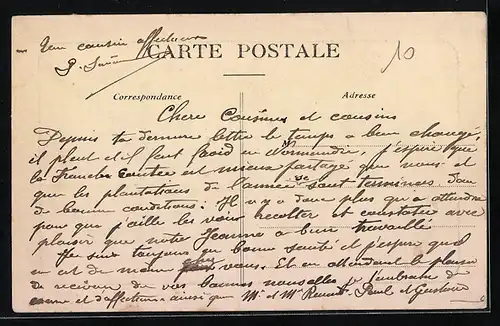 Ton cousin affectueux
P.
10
CARTE POSTALE
Correspondance
Adresse
Chere Cousine et cousins
Depuis ta derniere lettre le temps a bien changé
il pleut et il fait froid en Normandie, j'espère que
la Franche Comtee est mieux partagé que nous et
que les plantations de l'année se sont terminées. Dans
de bonne conditions. Il n'y a donc plus qu'a attendre
pour que j'aille les voir recolter et constater avec
plaisir que notre Jeanne a bien travaillé
suis toujours en bonne santé et j'espère qu'il
en est de meme chez vous. Et en attendant le plaisir
de recevoir de vos bonnes nouvelles je t'embrasse de
coeur et d'affection ainsi que Mr et Mme Paul et Gustave